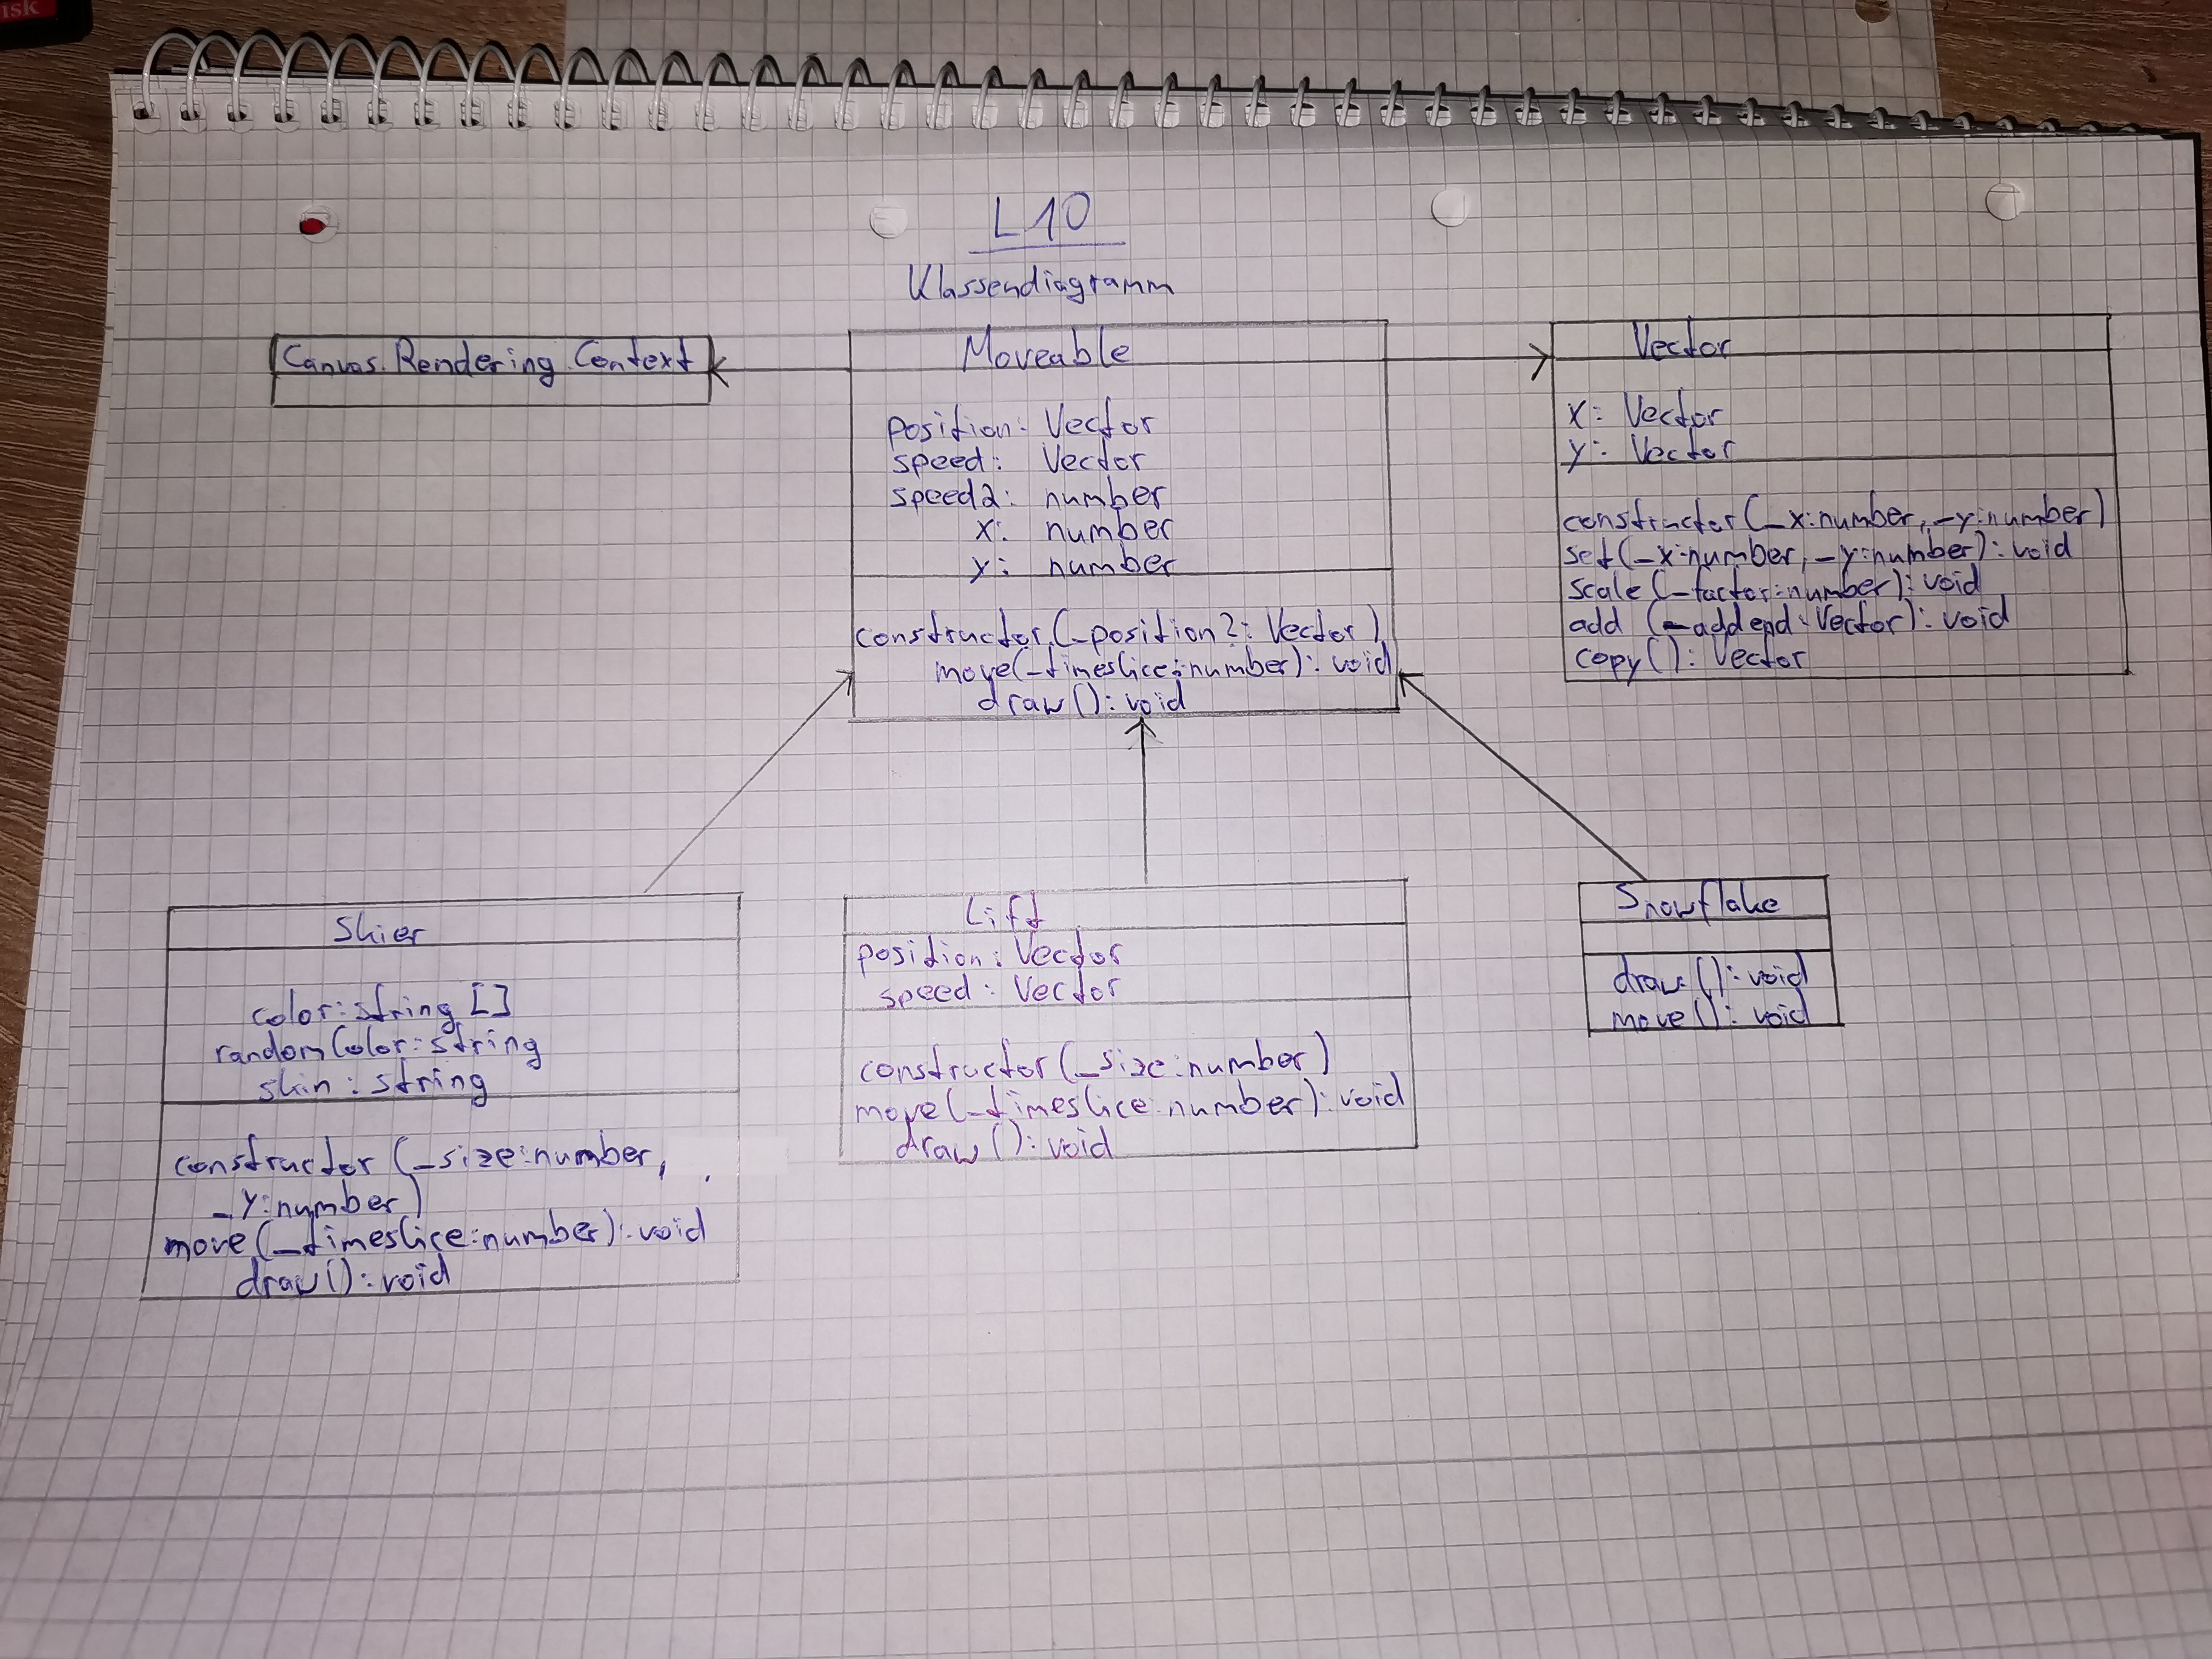 isk
L10
Klassendiagramm
Canvas Rendering Context
Moveable
position: Vector
speed: Vector
speed2: number
x: number
y: number
constructor(_position?: Vector)
move(_timeslice: number): void
draw(): void
Vector
x: Vector
y: Vector
constructor(_x:number, _y:number)
set(_x:number, _y:number): void
scale(_factor:number): void
add (_addend: Vector): void
copy(): Vector
Skier
color: string []
randomColor: string
skin: string
constructor (_size:number,
_y:number)
move(_timeslice:number): void
draw(): void
Lift
position: Vector
speed: Vector
constructor(_size:number)
move(_timeslice:number): void
draw(): void
Snowflake
draw(): void
move(): void